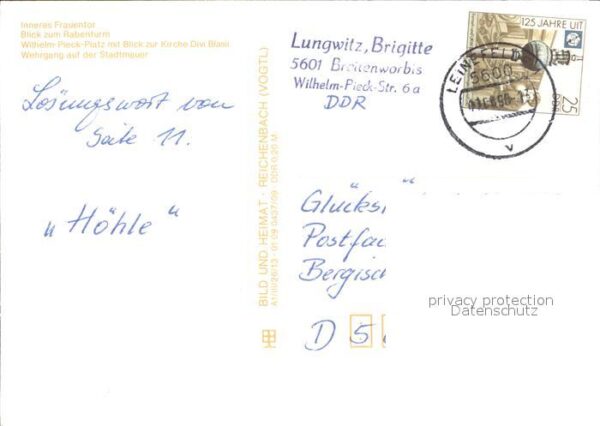 Inneres Frauentor
Blick zum Rabenturm
Wilhelm-Pieck-Platz mit Blick zur Kirche Divi Blasii
Wehrgang auf der Stadtmauer
Lösungswort von
Seite 11.
„Höhle“
BILD UND HEIMAT · REICHENBACH (VOGTL)
A1/III/26/13 · 01 09 0437/09 · DDR 0,20 M
Lungwitz, Brigitte
5601 Breitenworbis
Wilhelm-Pieck-Str. 6a
DDR
125 JAHRE UIT
25
DDR
LEINEFELDE
5600
v
Postfac
Bergisc
D 5
privacy protection
Datenschutz